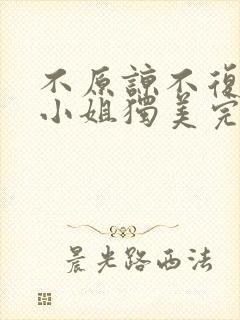 不原諒不復
小姐獨美完
晨光路西法